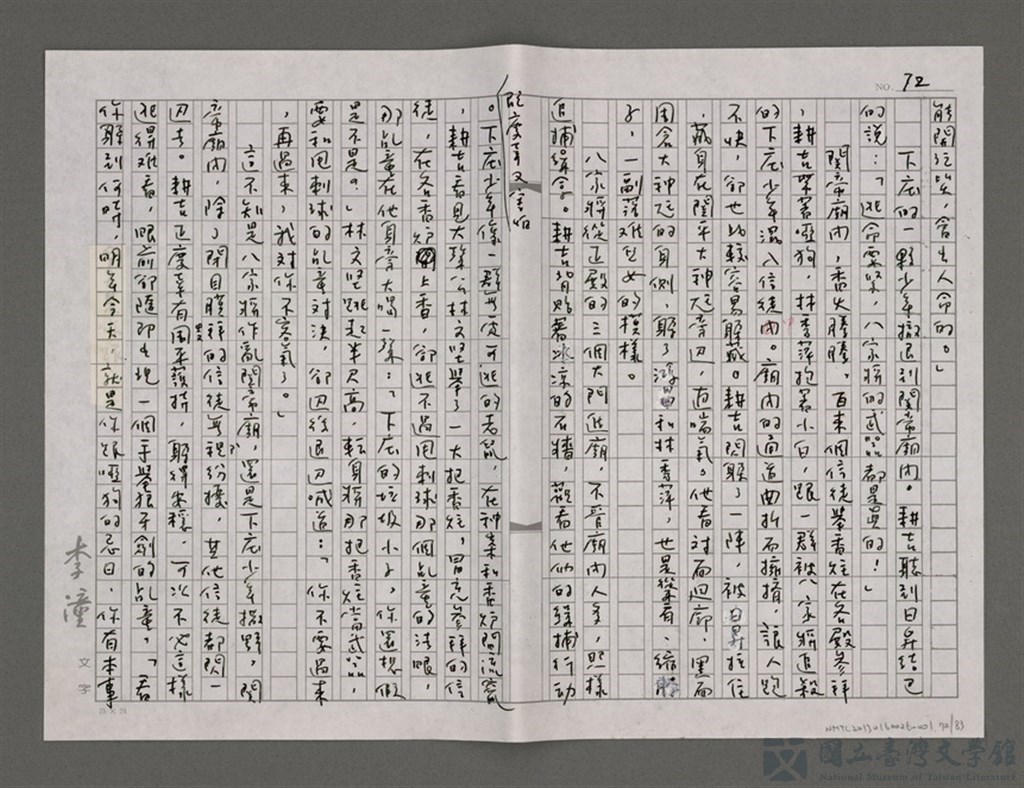 NO. 72
能鬧玩笑,會出人命的。」
下庄的一夥少年撤退到關帝廟內。耕吉聽到日昇結巴
的說:「逃命要緊,八家將的武器都是真的!」
關帝廟內,香火騰騰,百來個信徒舉香炷在各殿參拜
,耕吉架著啞狗,林秀萍抱著小白,跟一群被八家將追殺
的下庄少年混入信徒內。廟內的通道曲折而擁擠,讓人跑
不快,卻也比較容易躲藏。耕吉閃躲了一陣,被日昇拉住
,藏身在關平大神尪旁邊,直喘氣。他看對面迴廊,黑面
周倉大神尪的身側,躲了鴻昌和林秀萍,也是架著、縮
著,一副落難兒女的模樣。
八家將從正殿的三個大門進廟,不管廟內人多,照樣
追捕緝拿。耕吉背貼著冰涼的石牆,觀看他們的緝捕行動
既慶幸又害怕
。下庄少年像一群無從可逃的老鼠,在神桌和香爐間流竄
,耕吉看見大隊公林文堅舉了一大把香炷,冒充參拜的信
徒,在各香爐上香,卻逃不過甩刺球那個乩童的法眼,
那乩童在他身旁大喝一聲:「下庄的垃圾小子,你還想假
是不是。」林文堅跳起半尺高,轉身將那把香炷當武器,
要和甩刺球的乩童對決,卻邊後退邊喊道:「你不要過來
,再過來,我對你不客氣了。」
這不知是八家將作亂關帝廟,還是下庄少年撒野,關
帝廟內,除了閉目膜拜的信徒無視紛擾,其他信徒都閃一
邊去。耕吉正慶幸有關平護持,躲得安穩,可以不必這樣
逃得難看,眼前卻隨即出現一個手舉狼牙劍的乩童,「看
你躲到何時,明年今天,就是你跟啞狗的忌日,你有本事
李潼
文字
25×24
NMTL20130160026-001, 72/83
國立臺灣文學館
National Museum of Taiwan Literature